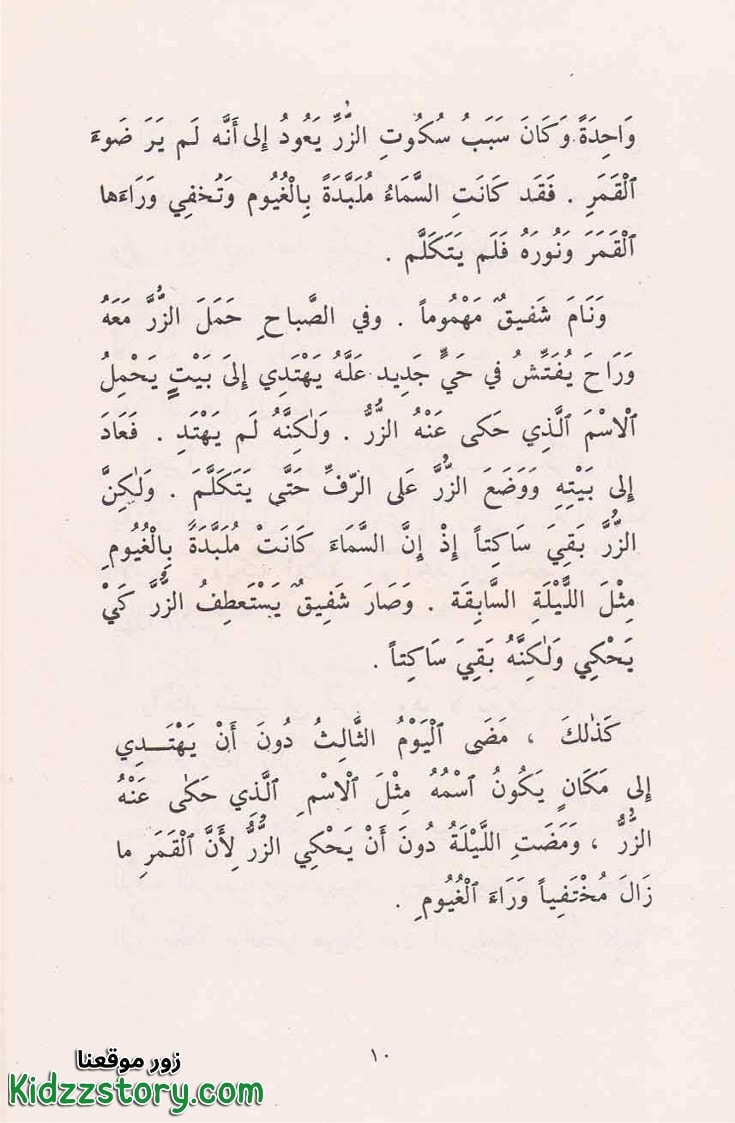 وَاحِدَةً وَكَانَ سَبَبُ سُكُوتِ الزُّرِّ يَعُودُ إلى أَنَّه لَم يَرَ ضَوءَ
ٱلْقَمَرِ . فَقَد كَانَتِ السَّمَاءُ مُلَبَّدَةً بِالْغُيُوم وَتُخفِي وَرَاءَها
ٱلْقَمَرَ وَنُورَهُ فَلَم يَتَكَلَّم .
وَنَامَ شَفيقٌ مَهْمُوماً . وفي الصَّباحِ حَمَلَ الزُّرَّ مَعَهُ
وَرَاحَ يُفَتِّشُ في حَيٍّ جَدِيد عَلَّهُ يَهْتَدِي إلىَ بَيْتٍ يَحْمِلُ
ٱلْاسْمَ ٱلَّذِي حَكى عَنْهُ الزُّرُّ . وَلٰكِنَّهُ لَم يَهْتَدِ . فَعَادَ
إلى بَيْتِهِ وَوَضَعَ الزُّرَّ عَلى الرّفِّ حَتَّى يَتَكَلَّمَ . وَلٰكِنَّ
الزُّرَّ بَقِيَ سَاكِتاً إذْ إنَّ السَّمَاءَ كَانَتْ مُلَبَّدَةً بِالْغُيُومِ
مِثْلَ اللَّيْلَةِ السَّابِقَة . وَصَارَ شَفِيقٌ يَسْتَعطِفُ الزُّرَّ كَيْ
يَحْكِي وَلٰكِنَّهُ بَقِيَ سَاكِتاً .
كَذٰلكَ ، مَضَى ٱلْيَوْمُ الثَّالِثُ دُونَ أَنْ يَهْتَـــدِي
إلى مَكَانٍ يَكُونُ ٱسْمُهُ مِثْلَ ٱلْاسْمِ ٱلَّذِي حَكَى عَنْهُ
الزُّرُّ ، وَمَضَتِ اللَّيْلَةُ دُونَ أَنْ يَحْكِي الزُّرُّ لِأَنَّ ٱلْقَمَرِ ما
زَالَ مُخْتَفِياً وَرَاءَ ٱلْغُيُومِ .
١٠
زور موقعنا
Kidzzstory.com